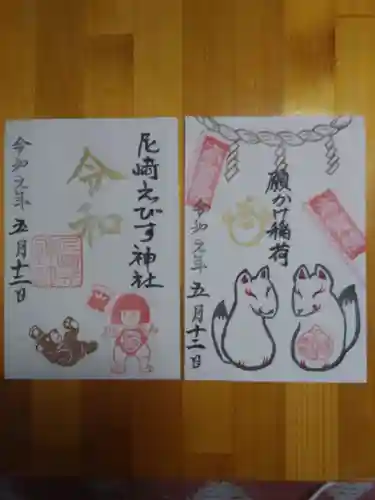 尼崎えびす神社
令和
令和元年五月十二日
願かけ稲荷
令和元年五月十二日